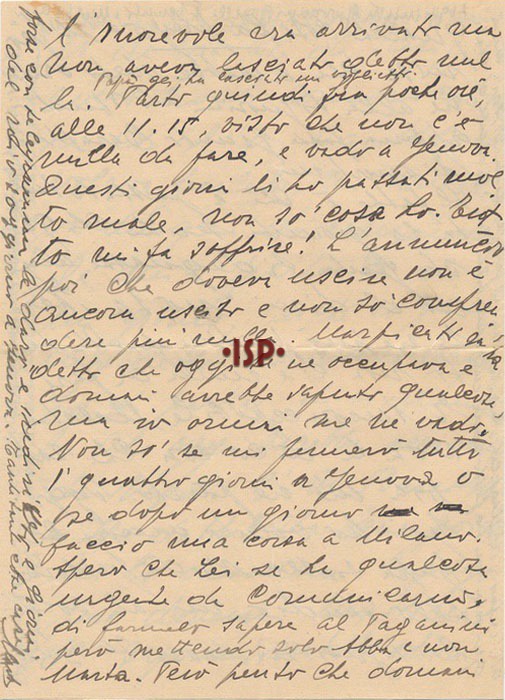 l'Onorevole era arrivato ma
non aveva lasciato detto nul
Papà gli ha lasciato un biglietto.
la. Parto quindi fra poche ore,
alle 11.15, visto che non c'è
nulla da fare, e vado a Genova.
Questi giorni li ho passati mol
to male, non so' cosa ho.
to mi fa soffrire! L'annuncio
poi che doveva uscire non è
ancora uscito e non so' compren
dere più nulla. Marpicati
detto che oggi se ne occupava e
domani avrebbe saputo qualcosa,
ma io ormai me ne vado.
Non so' se mi fermerò tutti
i quattro giorni a Genova o
se dopo un giorno
faccio una corsa a Milano.
Spero che Lei se ha qualcosa
urgente da comunicarmi,
di farmelo sapere al Paganini
però mettendo solo Abba e non
Marta. Però penso che domani
ISP
del mio soggiorno a Genova. Tante